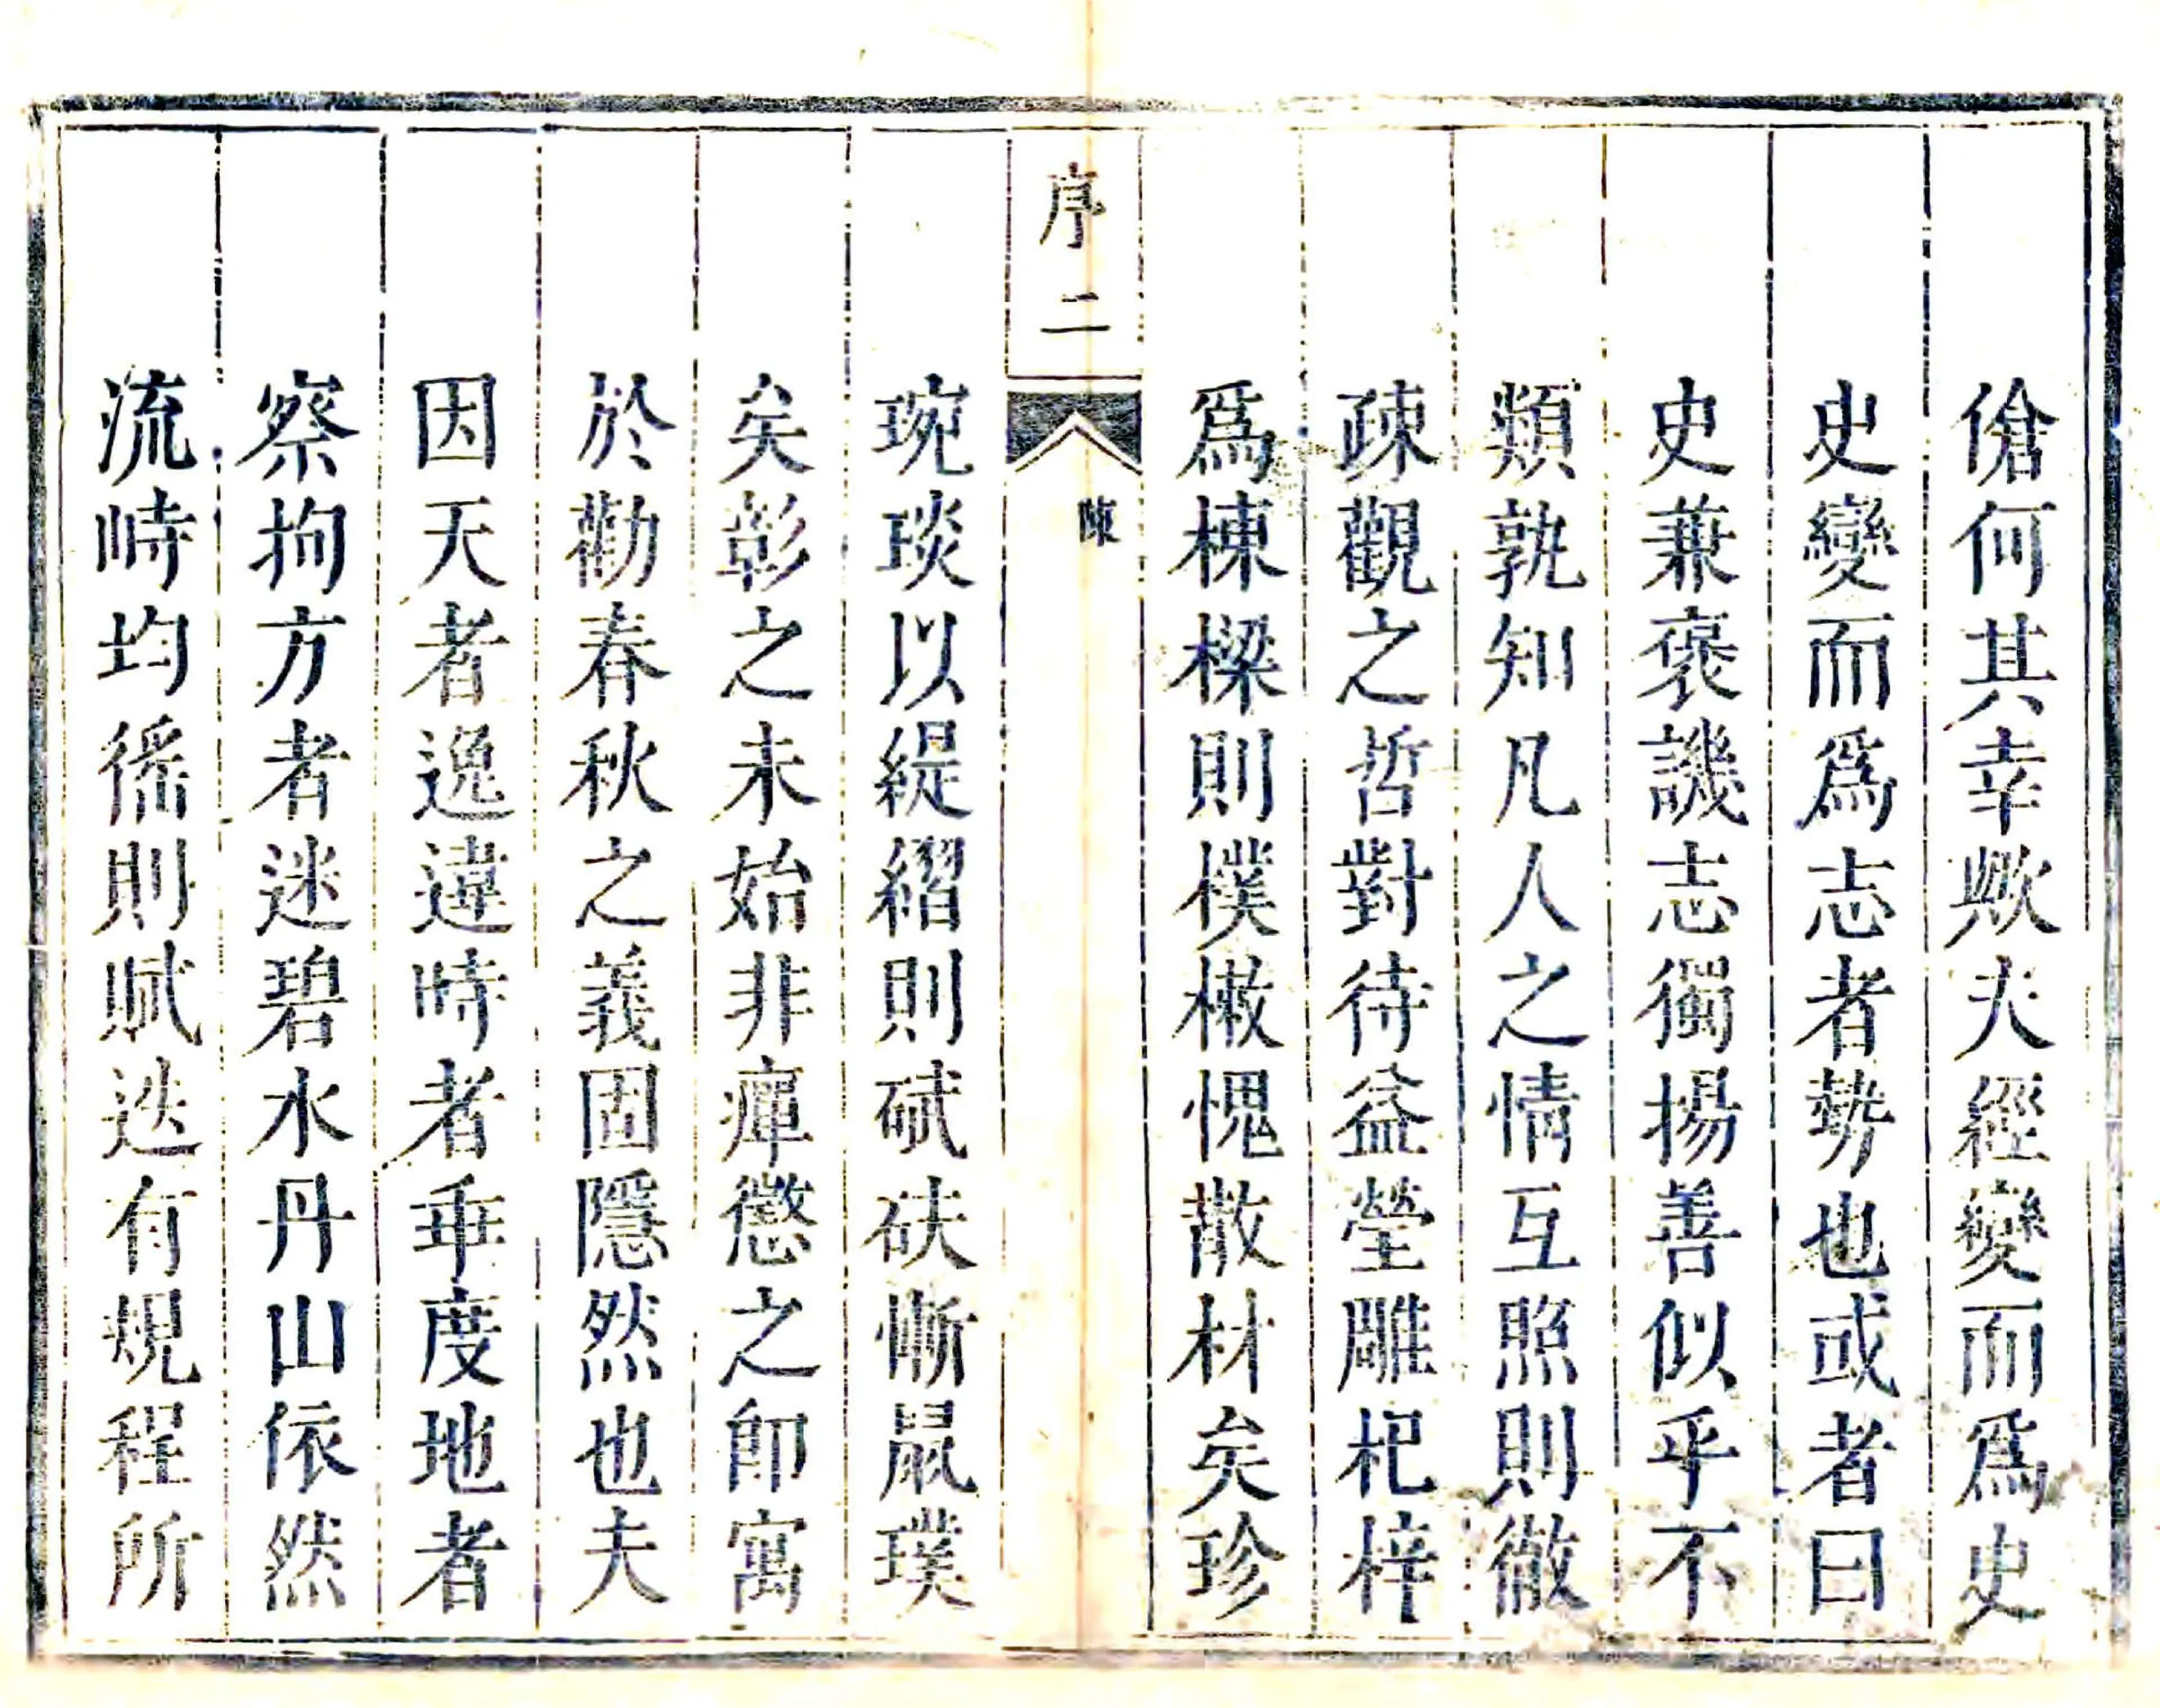 傖何其幸歟夫經變而爲史
史變而爲志者勢也或者曰
史兼褒譏志獨揚善似乎不
類孰知凡人之情互照則徹
疎觀之哲對待益瑩雕杞梓
爲棟樑則樸樕愧散材矣珍
序二
陳
琬琰以緹縎則碔砆慚鼠璞
矣彰之未始非癉懲之卽寓
於勸春秋之義固隱然也夫
因天者逸違時者乖度地者
察拘方者迷碧水丹山依然
流峙均徭則賦迭有規程所